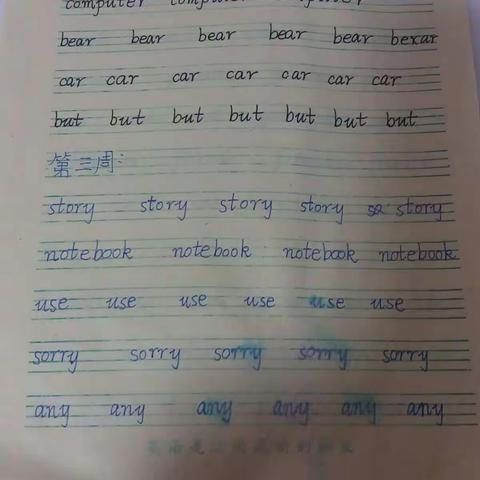 computer computer computer
bear bear bear bear bear bexar
car car car car car car car
but but but but but but but
第三周:
story story story story story
notebook notebook notebook notebook
use use use use use use
sorry sorry sorry sorry sorry
any any any any any any